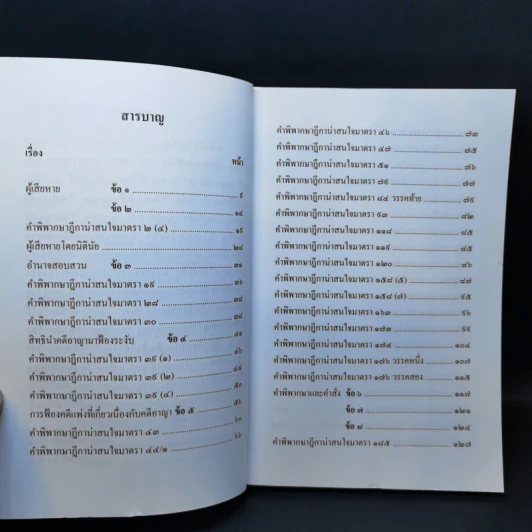 สารบาญ
เรื่อง หน้า
ผู้เสียหาย ข้อ ๑ ๙
ข้อ ๒ ๑๔
คำพิพากษาฎีกาน่าสนใจมาตรา ๒ (๔) ๑๙
ผู้เสียหายโดยนิตินัย ๒๔
อำนาจสอบสวน ข้อ ๓ ๓๑
คำพิพากษาฎีกาน่าสนใจมาตรา ๑๙ ๓๖
คำพิพากษาฎีกาน่าสนใจมาตรา ๒๘ ๓๔
คำพิพากษาฎีกาน่าสนใจมาตรา ๓๐
สิทธินำคดีอาญามาฟ้องระงับ ข้อ ๔ ๔๑
คำพิพากษาฎีกาน่าสนใจมาตรา ๓๙ (๑) ๔๖
คำพิพากษาฎีกาน่าสนใจมาตรา ๓๙ (๒)
คำพิพากษาฎีกาน่าสนใจมาตรา ๓๙ (๔) ๕๐
การฟ้องคดีแพ่งที่เกี่ยวเนื่องกับคดีอาญา ข้อ ๕
คำพิพากษาฎีกาน่าสนใจมาตรา ๔๓ ๖๐
คำพิพากษาฎีกาน่าสนใจมาตรา ๔๔/๑
คำพิพากษาฎีกาน่าสนใจมาตรา ๔๖ ๗๓
คำพิพากษาฎีกาน่าสนใจมาตรา ๔๗ ๗๕
คำพิพากษาฎีกาน่าสนใจมาตรา ๕๑ ๗๖
คำพิพากษาฎีกาน่าสนใจมาตรา ๗๙ ๗๗
คำพิพากษาฎีกาน่าสนใจมาตรา ๘๔ วรรคท้าย ๗๙
คำพิพากษาฎีกาน่าสนใจมาตรา ๙๓ ๘๒
คำพิพากษาฎีกาน่าสนใจมาตรา ๑๑๘ ๘๕
คำพิพากษาฎีกาน่าสนใจมาตรา ๑๑๙ ๘๕
คำพิพากษาฎีกาน่าสนใจมาตรา ๑๒๐ ๘๖
คำพิพากษาฎีกาน่าสนใจมาตรา ๑๕๘ (๕) ๘๗
คำพิพากษาฎีกาน่าสนใจมาตรา ๑๕๘ (๗) ๙๕
คำพิพากษาฎีกาน่าสนใจมาตรา ๑๖๓ ๙๖
คำพิพากษาฎีกาน่าสนใจมาตรา ๑๗๓ ๙๙
คำพิพากษาฎีกาน่าสนใจมาตรา ๑๗๔ ๑๐๔
คำพิพากษาฎีกาน่าสนใจมาตรา ๑๗๖ วรรคหนึ่ง ๑๐๗
คำพิพากษาฎีกาน่าสนใจมาตรา ๑๗๖ วรรคสอง ๑๑๕
คำพิพากษาและคำสั่ง ข้อ ๖ ๑๑๗
ข้อ ๗ ๑๒๑
ข้อ ๘ ๑๒๔
คำพิพากษาฎีกาน่าสนใจมาตรา ๑๘๕ ๑๒๗